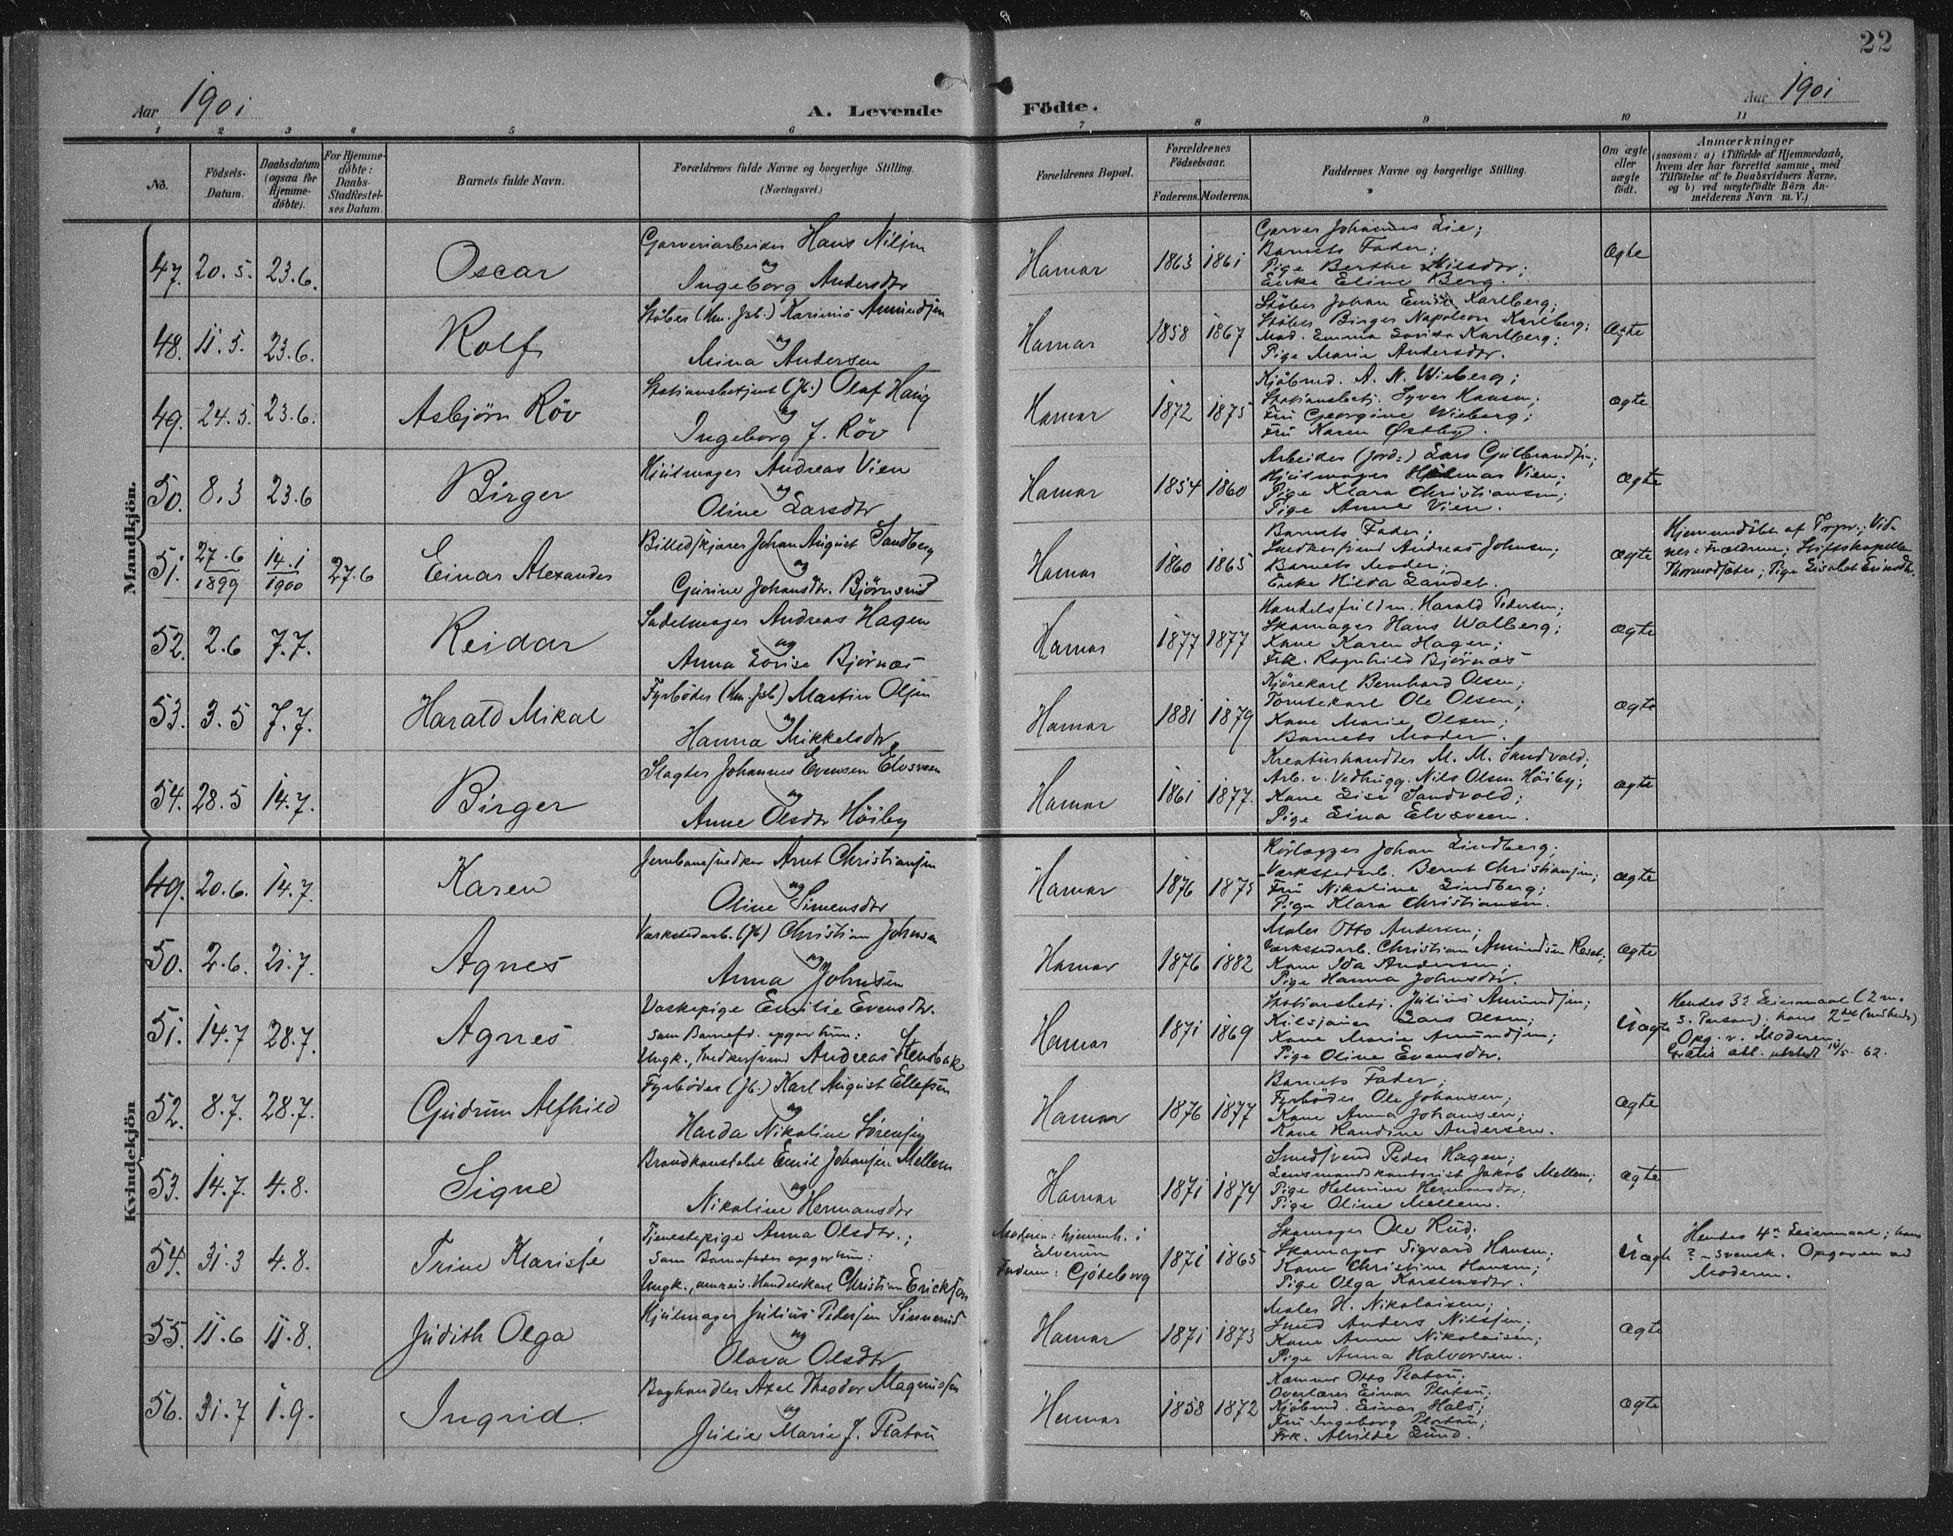 22
Aar 1901
A. Levende Födte.
Aar 1901
1 2 3 4 5 6 7 8 9 10 11
No.
Födsels-
Datum.
Daabsdatum
(ogsaa for
Hjemme-
døbte).
For Hjemme-
døbte:
Daabs-
Stadfestel-
ses Datum.
Barnets fulde Navn.
Forældrenes fulde Navne og borgerlige Stilling.
(Næringsvei.)
Forældrenes Bopæl.
Forældrenes
Födselsaar.
Faderens. Moderens.
Faddernes Navne og borgerlige Stilling.
Om ægte
eller
uægte
født.
Anmærkninger
(saasom: a) i Tilfælde af Hjemmedaab,
hvem der har forrettet samme, med
Tilføielse af to Daabsvidners Navne.
og b) ved uægtefödte Börn An-
melderens Navn m. V.)
Mandkjön.
47. 20.5. 23.6. Oscar
Garveriarbeider Hans Nilsen
og
Ingeborg Andersdtr
Hamar 1863 1861
Garver Johannes Lie;
Barnets Fader;
Pige Berthe Nilsdtr;
Enke Eline Berg.
Ægte
48. 11.5. 23.6. Rolf
Støber (Hm. Jsb.) Karinus Amundsen
og
Mina Andersen
Hamar 1858 1867
Støber Johan Emil Karlberg;
Støber Birger Napoleon Karlberg;
Mad. Emma Lovisa Karlberg;
Pige Marie Andersdtr.
Ægte
49. 24.5. 23.6. Asbjørn Røv
Stationsbetjent (Jb.) Olaf Haug
og
Ingeborg J. Røv
Hamar 1872 1875
Kjøbmd. A. N. Wiberg;
Stationsbetj. Syver Hansen;
Fru Georgine Wiberg;
Fru Karen Østby.
ægte
50. 8.3 23.6 Birger
Hjulmager Andreas Vien
og
Oline Larsdtr
Hamar 1854 1860
Arbeider (Jord:) Lars Gulbrandsen;
Hjulmager Vien;
Pige Klara Christiansen;
Pige Anne Vien.
ægte
51. 27.6 1899 14.1 1900 27.6 Einar Alexander
Billedskjærer Johan August Sandberg
og
Gurine Johansdtr. Bjørnsrud
Hamar 1860 1865
Barnets Fader;
Snedkersvend Andreas Johnsen;
Barnets Moder;
Enke Hilda Sandet.
ægte
52. 2.6 7.7. Reidar
Sadelmager Andreas Hagen
og
Anna Lovise Bjørnæs
Hamar 1877 1877
Handelsfuldm. Harald Pedersen;
Skomager Hans Walberg;
Kone Karen Hagen;
Frk. Ragnhild Bjørnæs
ægte
53. 3.5 7.7. Harald Mikal
Fyrbøder (Hm. Jsb.) Martin Olsen
og
Hanna Mikkelsdtr.
Hamar 1881 1879
Kjørekarl Bernhard Olsen;
Tomtekarl Ole Olsen;
Kone Marie Olsen;
Barnets Moder.
ægte
54. 28.5 14.7. Birger
Slagter Johannes Evensen Elvsveen
og
Anne Olsdtr Høiby
Hamar 1861 1877.
Kreaturhandler M. M. Sandvold;
Arb. v. Vedhugg. Nils Olsen Høiby;
Kone Lise Sandvold;
Pige Lina Elvsveen.
ægte
Kvindekjön
49. 20.6. 14.7. Karen
Jernbanesnedker Arnt Christiansen
og
Oline Simensdtr
Hamar 1876 1875
Johan Lindberg;
Værkstedarb. Bernt Christiansen;
Fru Nikoline Lindberg;
Pige Klara Christiansen.
ægte
50. 2.6. 21.7. Agnes
Værkstedarb. (Jb) Christian Johnsen
og
Anna Johnsen
Hamar 1876 1882
Maler Otto Andersen;
Værkstedarb. Christian Amundsen;
Kone Ida Andersen;
Pige Hanna Johnsdtr.
ægte
51. 14.7 28.7. Agnes
Vaskepige Emilie Evensdtr.
Som Barnefd. opgav hun:
Ungk., Snedkersvend Andreas Stensbak
Hamar 1871 1869
Stationsbetj. Julius Amundsen;
Lars Olsen;
Kone Marie Amundsen;
Pige Oline Evensdtr.
Uægte
Opg. v. Moderen.
52. 8.7. 28.7. Gudrun Alfhild
Fyrbøder (Jb.) Karl August Ellefsen
og
Harda Nikoline Sørensen
Hamar 1876 1877
Barnets Fader;
Fyrbøder Ole Johansen;
Kone Anna Johansen;
Kone Randine Andersen.
ægte
53. 14.7. 4.8. Signe
Brandkonstabel Emil Johansen Mellem
og
Nikoline Hermansdtr
Hamar 1871 1874
Smedsvend Peder Hagen;
Lensmandskontorist Jakob Mellem;
Pige Helmine Hermansdtr;
Pige Oline Mellem.
ægte
54. 31.3 4.8. Trine Marisse
Tjenestepige Anna Olsdtr.;
Som Barnefader opgav hun:
Ungk., omreis. Handelskarl Christian Erickson
Moderen: hjemmh. i
Elverum
Faderen: Gjøteborg
1871 1865
Skomager Ole Rud;
Skomager Sigvard Hansen;
Kone Christine Hansen;
Pige Olga Karstensdtr.
Uægte
Hendes 4de Leiermaal; hans
? - svensk. Opgaven ved
Moderen.
55. 11.6 11.8. Judith Olga
Hjulmager Julius Pedersen Sinnerud
og
Olava Olsdtr
Hamar 1871 1873
Maler H. Nikolaisen;
Smed Anders Nilssen;
Kone Anna Nikolaisen;
Pige Anna Halvorsen.
ægte
56. 31.7 1.9. Ingrid.
Boghandler Axel Theodor Magnussen
og
Julie Marie J. Platou
Hamar 1858 1872
Kæmner Otto Platou;
Overlærer Einar Platou;
Kjøbmd. Einar Hals;
Fru Ingeborg Platou;
Frk. Alvilde Lund.
ægte